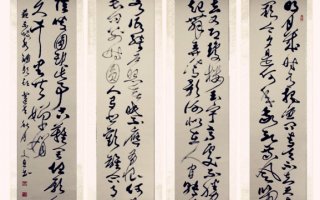 明月幾時有把酒問青天不知天上宮
闕今夕是何年我欲乘風歸
去又恐瓊樓玉宇高處不勝
寒起舞弄清影何似在人間轉
朱閣低綺戶照無眠不應有恨何
事長向別時圓人有悲歡離合月
有陰晴圓缺此事古難全但願人
長久千里共嬋娟